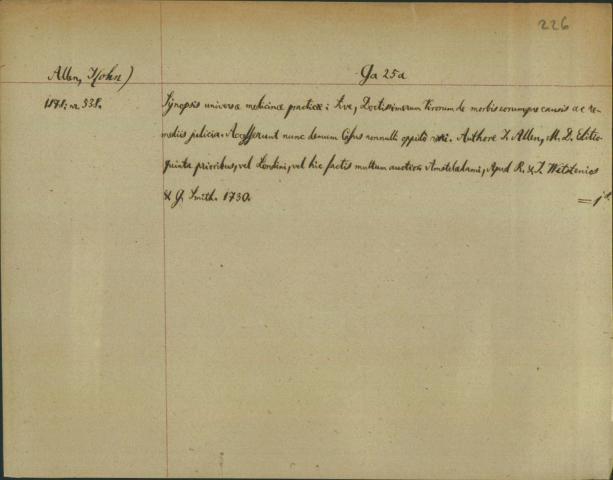 226
Allen, J(ohn)
Ga 25a
1898: nr 338.
Synopsis universæ medicinæ practicæ: sive, Doctissimorum virorum de morbis eorumque causis ac re-
mediis judicia. Accesserunt nunc demum Casus nonnulli oppido rari. Authore J. Allen, M. D. Editio
quinta prioribus, vel Londini, vel hic factis multum auctior. Amstelædami, Apud R. & J. Wetstenios
& G. Smith. 1730.